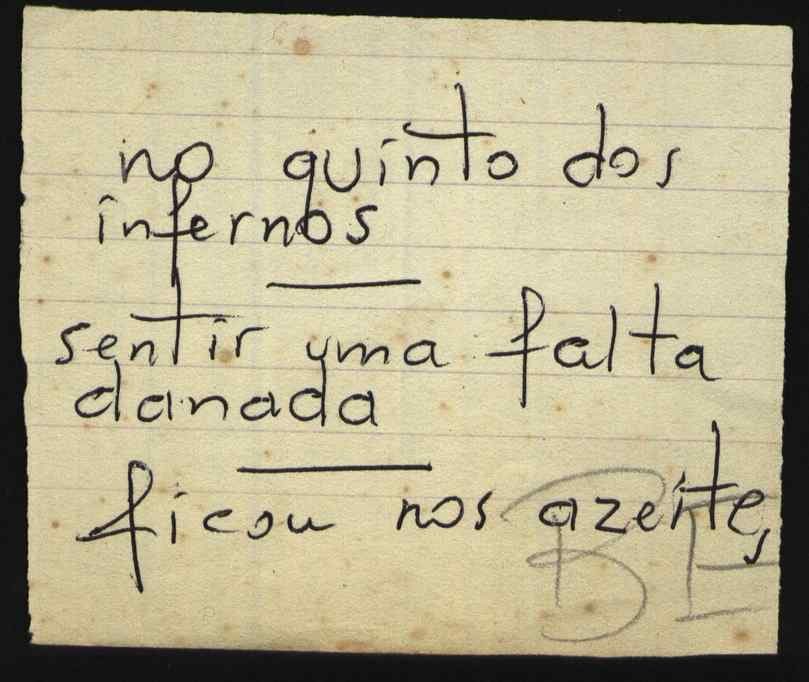 no quinto dos
infernos
sentir uma falta
danada
ficou nos azeites
BE